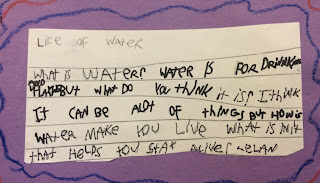 LIFE OF WATER
WHAT IS WATER? WATER IS FOR DRINKING
BUT WHAT DO YOU THINK it IS? I think
It CAN BE ALOT OF tHINGS BUt HOW is
WAtER MAKE YOU LIVE WHAt IS IN It
tHAt HELPS YOU StAY ALIVE? ELAN